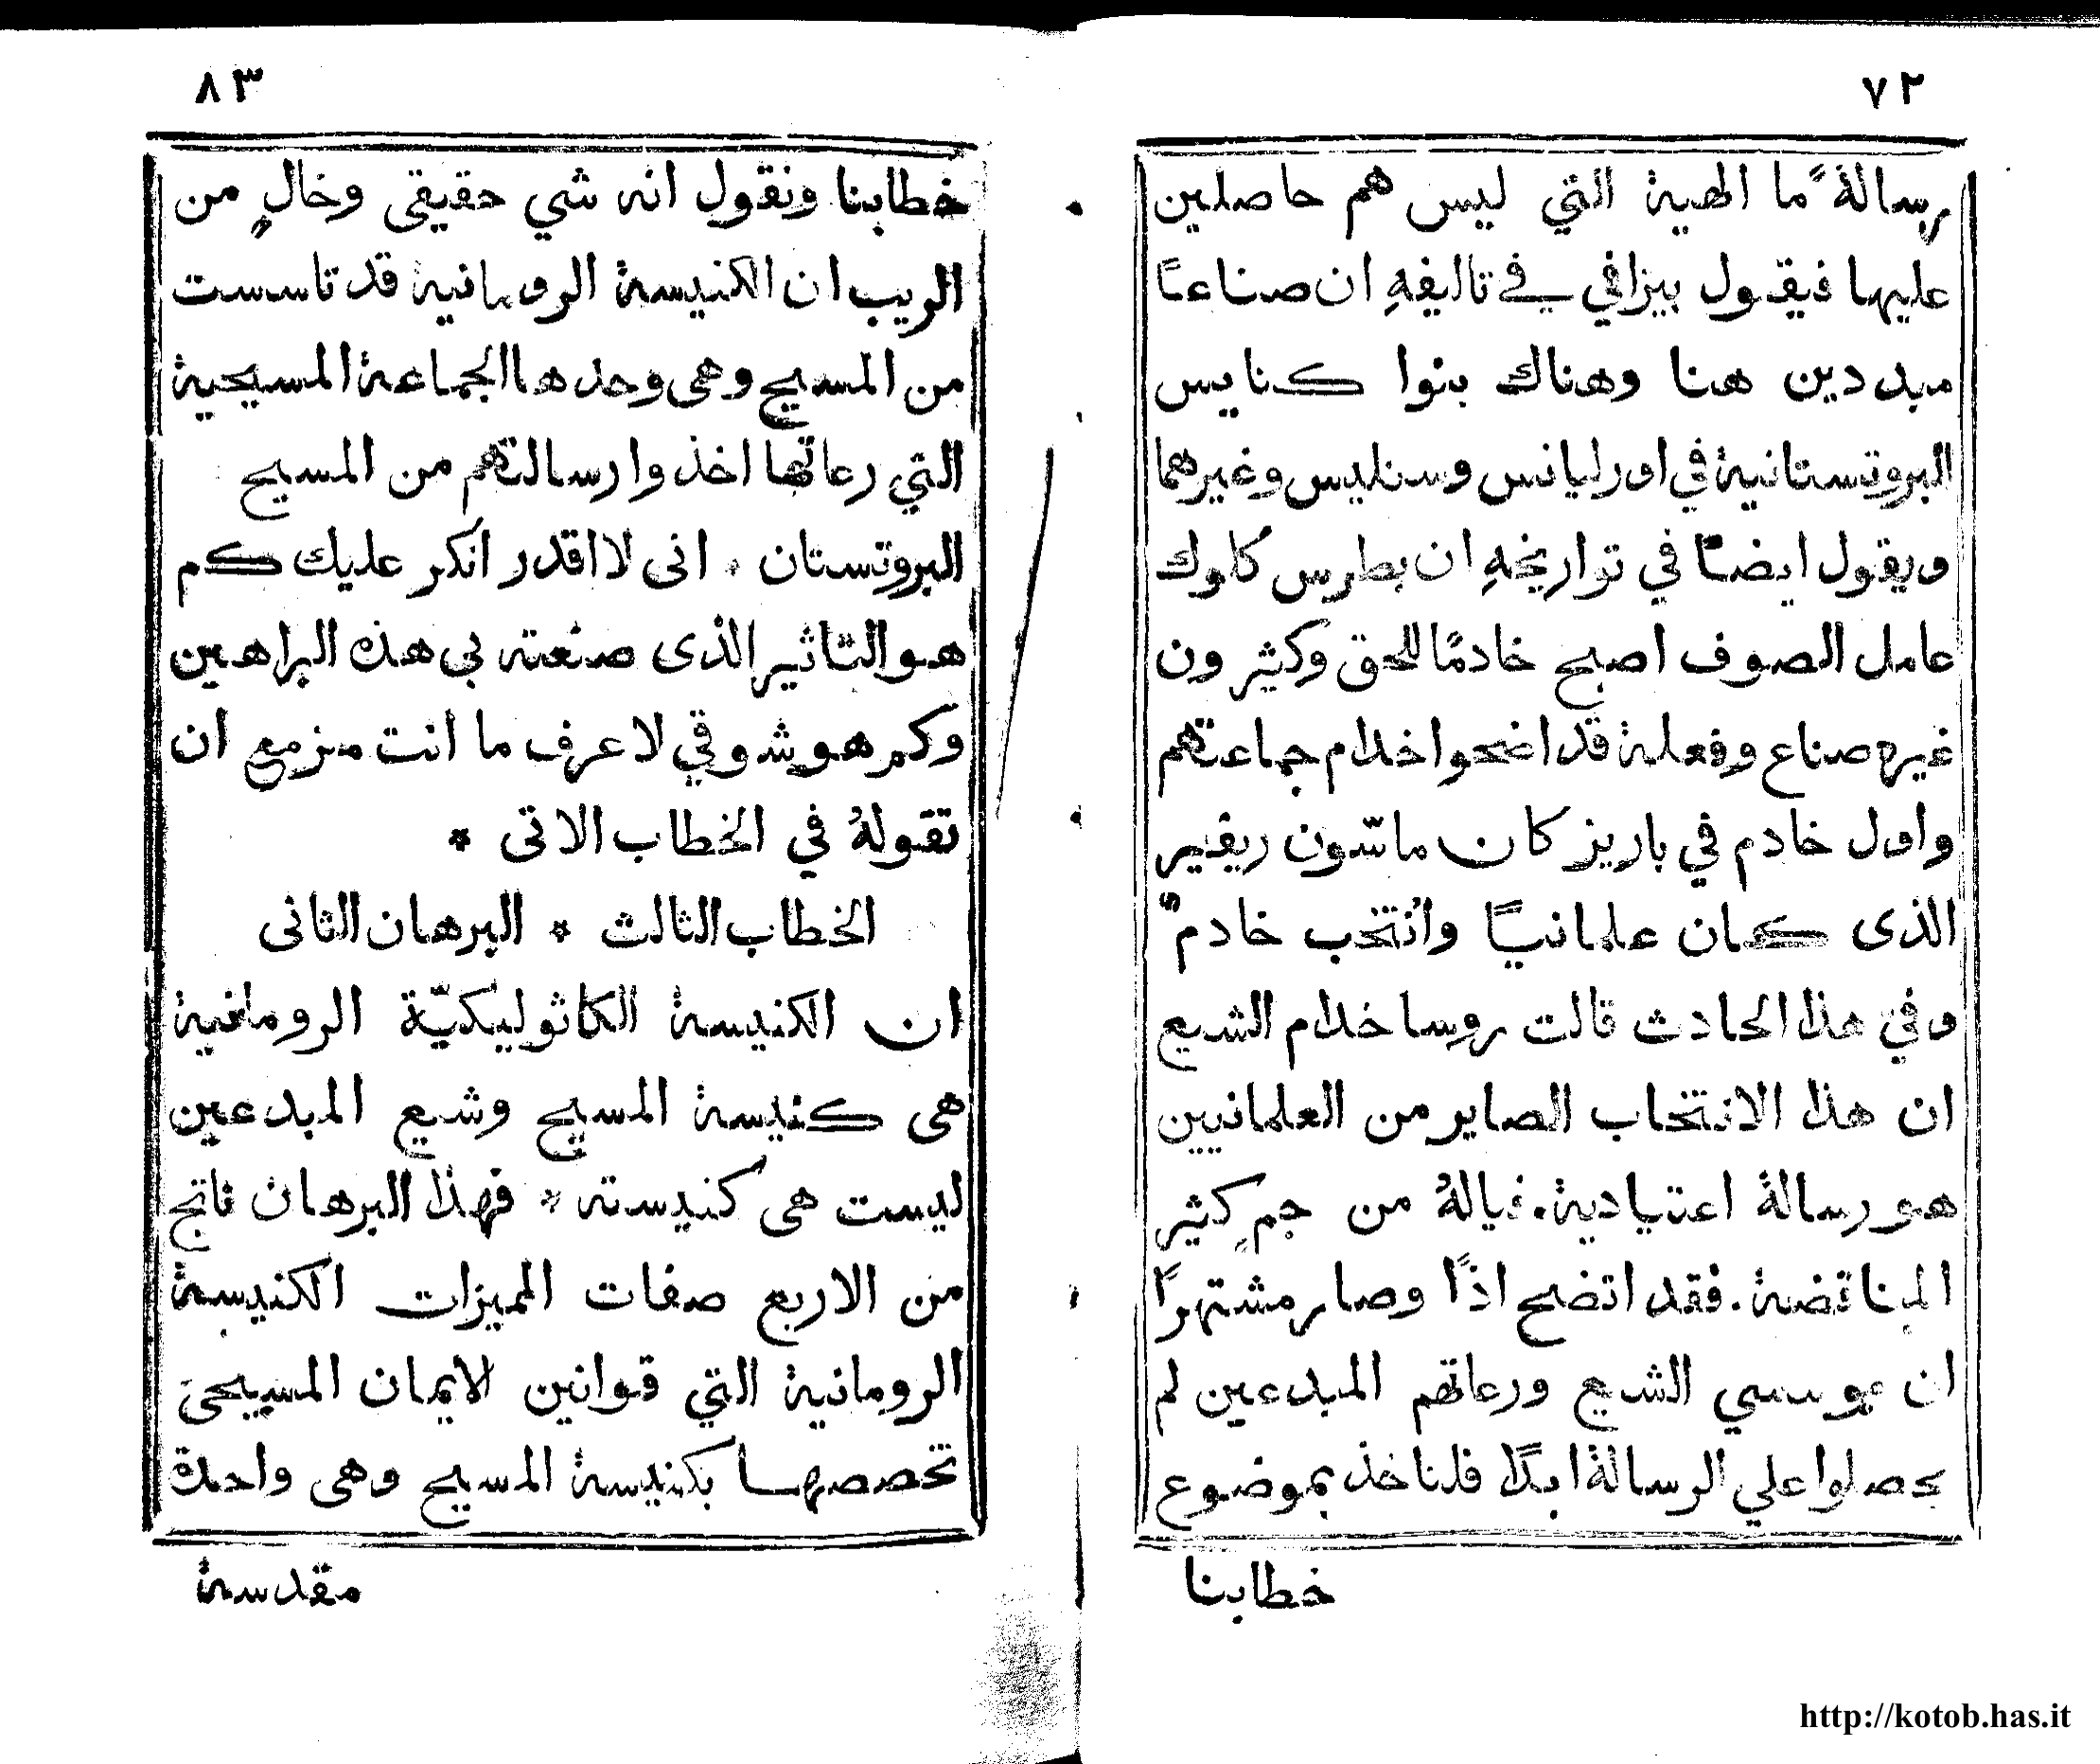 ٧٢
رسالةً ما الهية التي ليس هم حاصلين
عليها فيقول بيزا في في تاليفهِ ان صناعًا
مبددين هنا وهناك بنوا كنايس
البروتستانية في اورليانس وسنليس وغيرهما
ويقول ايضًا في تواريخهِ ان بطرس كلوك
عامل الصوف اصبح خادمًا للحق وكثيرون
غيره صناع وفعلة قد اضحوا خدام جماعتهم
واول خادم في باريز كان ماسّون ريفير
الذى كان علمانيًا وانتخب خادمٌ
وفي هذا الحادث قالت روسا خدام الشيع
ان هذا الانتخاب الصاير من العلمانيين
هو رسالة اعتيادية. فيالهُ من جمٍ كثير
المناقضة. فقد اتضح اذًا وصار مشتهرًا
ان موسسي الشيع ورعاتهم المبدعين لم
يحصلوا علي الرسالة ابدًا فلناخذ بموضوع
خطابنا
٨٣
خطابنا ونقول انه شي حقيقى وخالٍ من
الريب ان الكنيسة الرومانية قد تاسست
من المسيح وهى وحدها الجماعة المسيحية
التي رعاتها اخذوا رسالتهم من المسيح
البروتستان * انى لا اقدر انكر عليك كم
هو التاثير الذى صنعته بى هذه البراهين
وكم هو شوقي لاعرف ما انت مزمع ان
تقولهُ في الخطاب الاتى *
الخطاب الثالث * البرهان الثانى
ان الكنيسة الكاثوليكيّة الرومانية
هى كنيسة المسيح وشيع المبدعين
ليست هى كنيسته * فهذا البرهان ناتج
من الاربع صفات المميزات الكنيسة
الرومانية التي قوانين الايمان المسيحى
تخصصها بكنيسة المسيح وهى واحدة
مقدسة
http://kotob.has.it